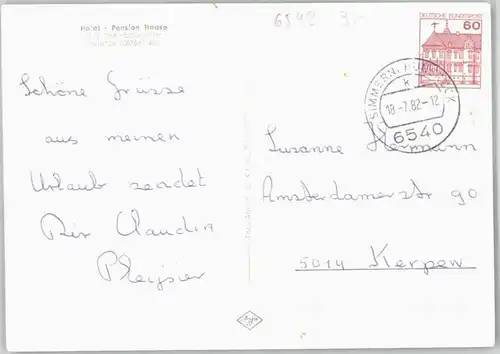 Hotel - Pension Haase
6542
DEUTSCHE BUNDESPOST
60
SIMMERN, HUNSRÜCK
K
18.-7.82-12
6540
Schöne Grüsse
aus meinen
Urlaub sendet
Dir Claudia
Susanne Hermann
Amsterdamerstr 90
5014 Kerpen